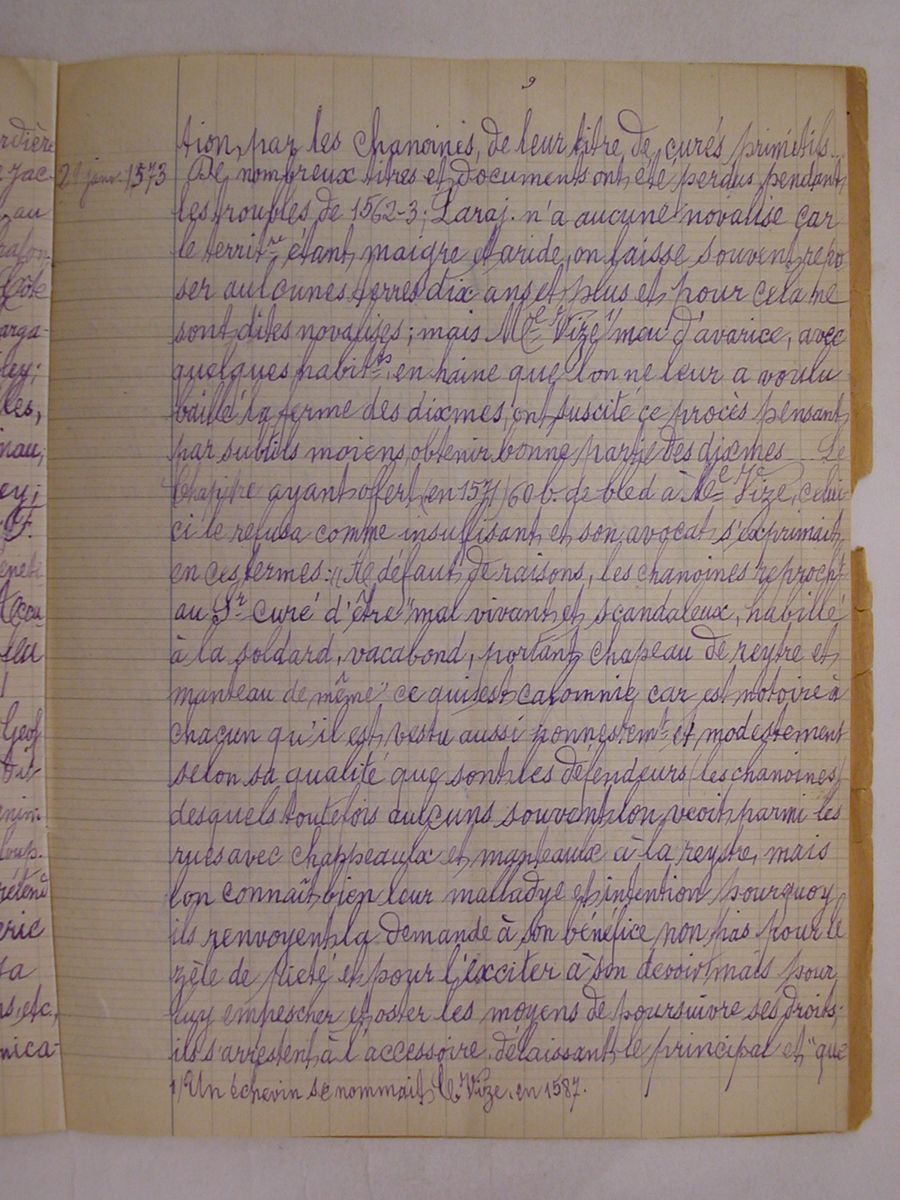 9
tion, par les chanoines, de leur titre de curés primitifs.
21 janv. 1573 De nombreux titres et documents ont été perdus pendant
les troubles de 1562-3; Laraj. n'a aucune novalise car
le territre étant maigre et aride, on laisse souvent repo
ser aulcunes terres dix ans et plus et pour cela ne
sont dites novalises; mais Me Vize "meu d'avarice, avec
quelques habitts, en haine que l'on ne leur a voulu
baillé la ferme des dixmes, ont suscité ce procès pensant
par subtils moiens obtenir bonne partie des dixmes... Le
Chapitre ayant offert (en 1571) 60 b. de bled à Me Vize, celui-
ci le refusa comme insuffisant et son avocat s'exprimait
en ces termes: "Au défaut de raisons, les chanoines reprocht
au Sr Curé d'être "mal vivant et scandaleux, habillé
à la soldard, vacabond, portant chapeau de reytre et
manteau de même" ce qui est calomnie car est notoire à
chacun qu'il est vestu aussi honnestemt et modestement
selon sa qualité que sont les défendeurs (les chanoines)
desquels toutefois aulcuns souvent l'on veoit parmi les
rues avec chappeaulx et manteaux à la reystre, mais
l'on connaît bien leur malladye et intention pourquoy
ils renvoyent la demande à son bénéfice non pas pour le
zèle de piété et pour l'exciter à son devoir mais pour
luy empescher et oster les moyens de poursuivre ses droits;
ils s'arrestent à l'accessoire, délaissant le principal et "que
1) Un échevin se nommait Ce Vize, en 1587.